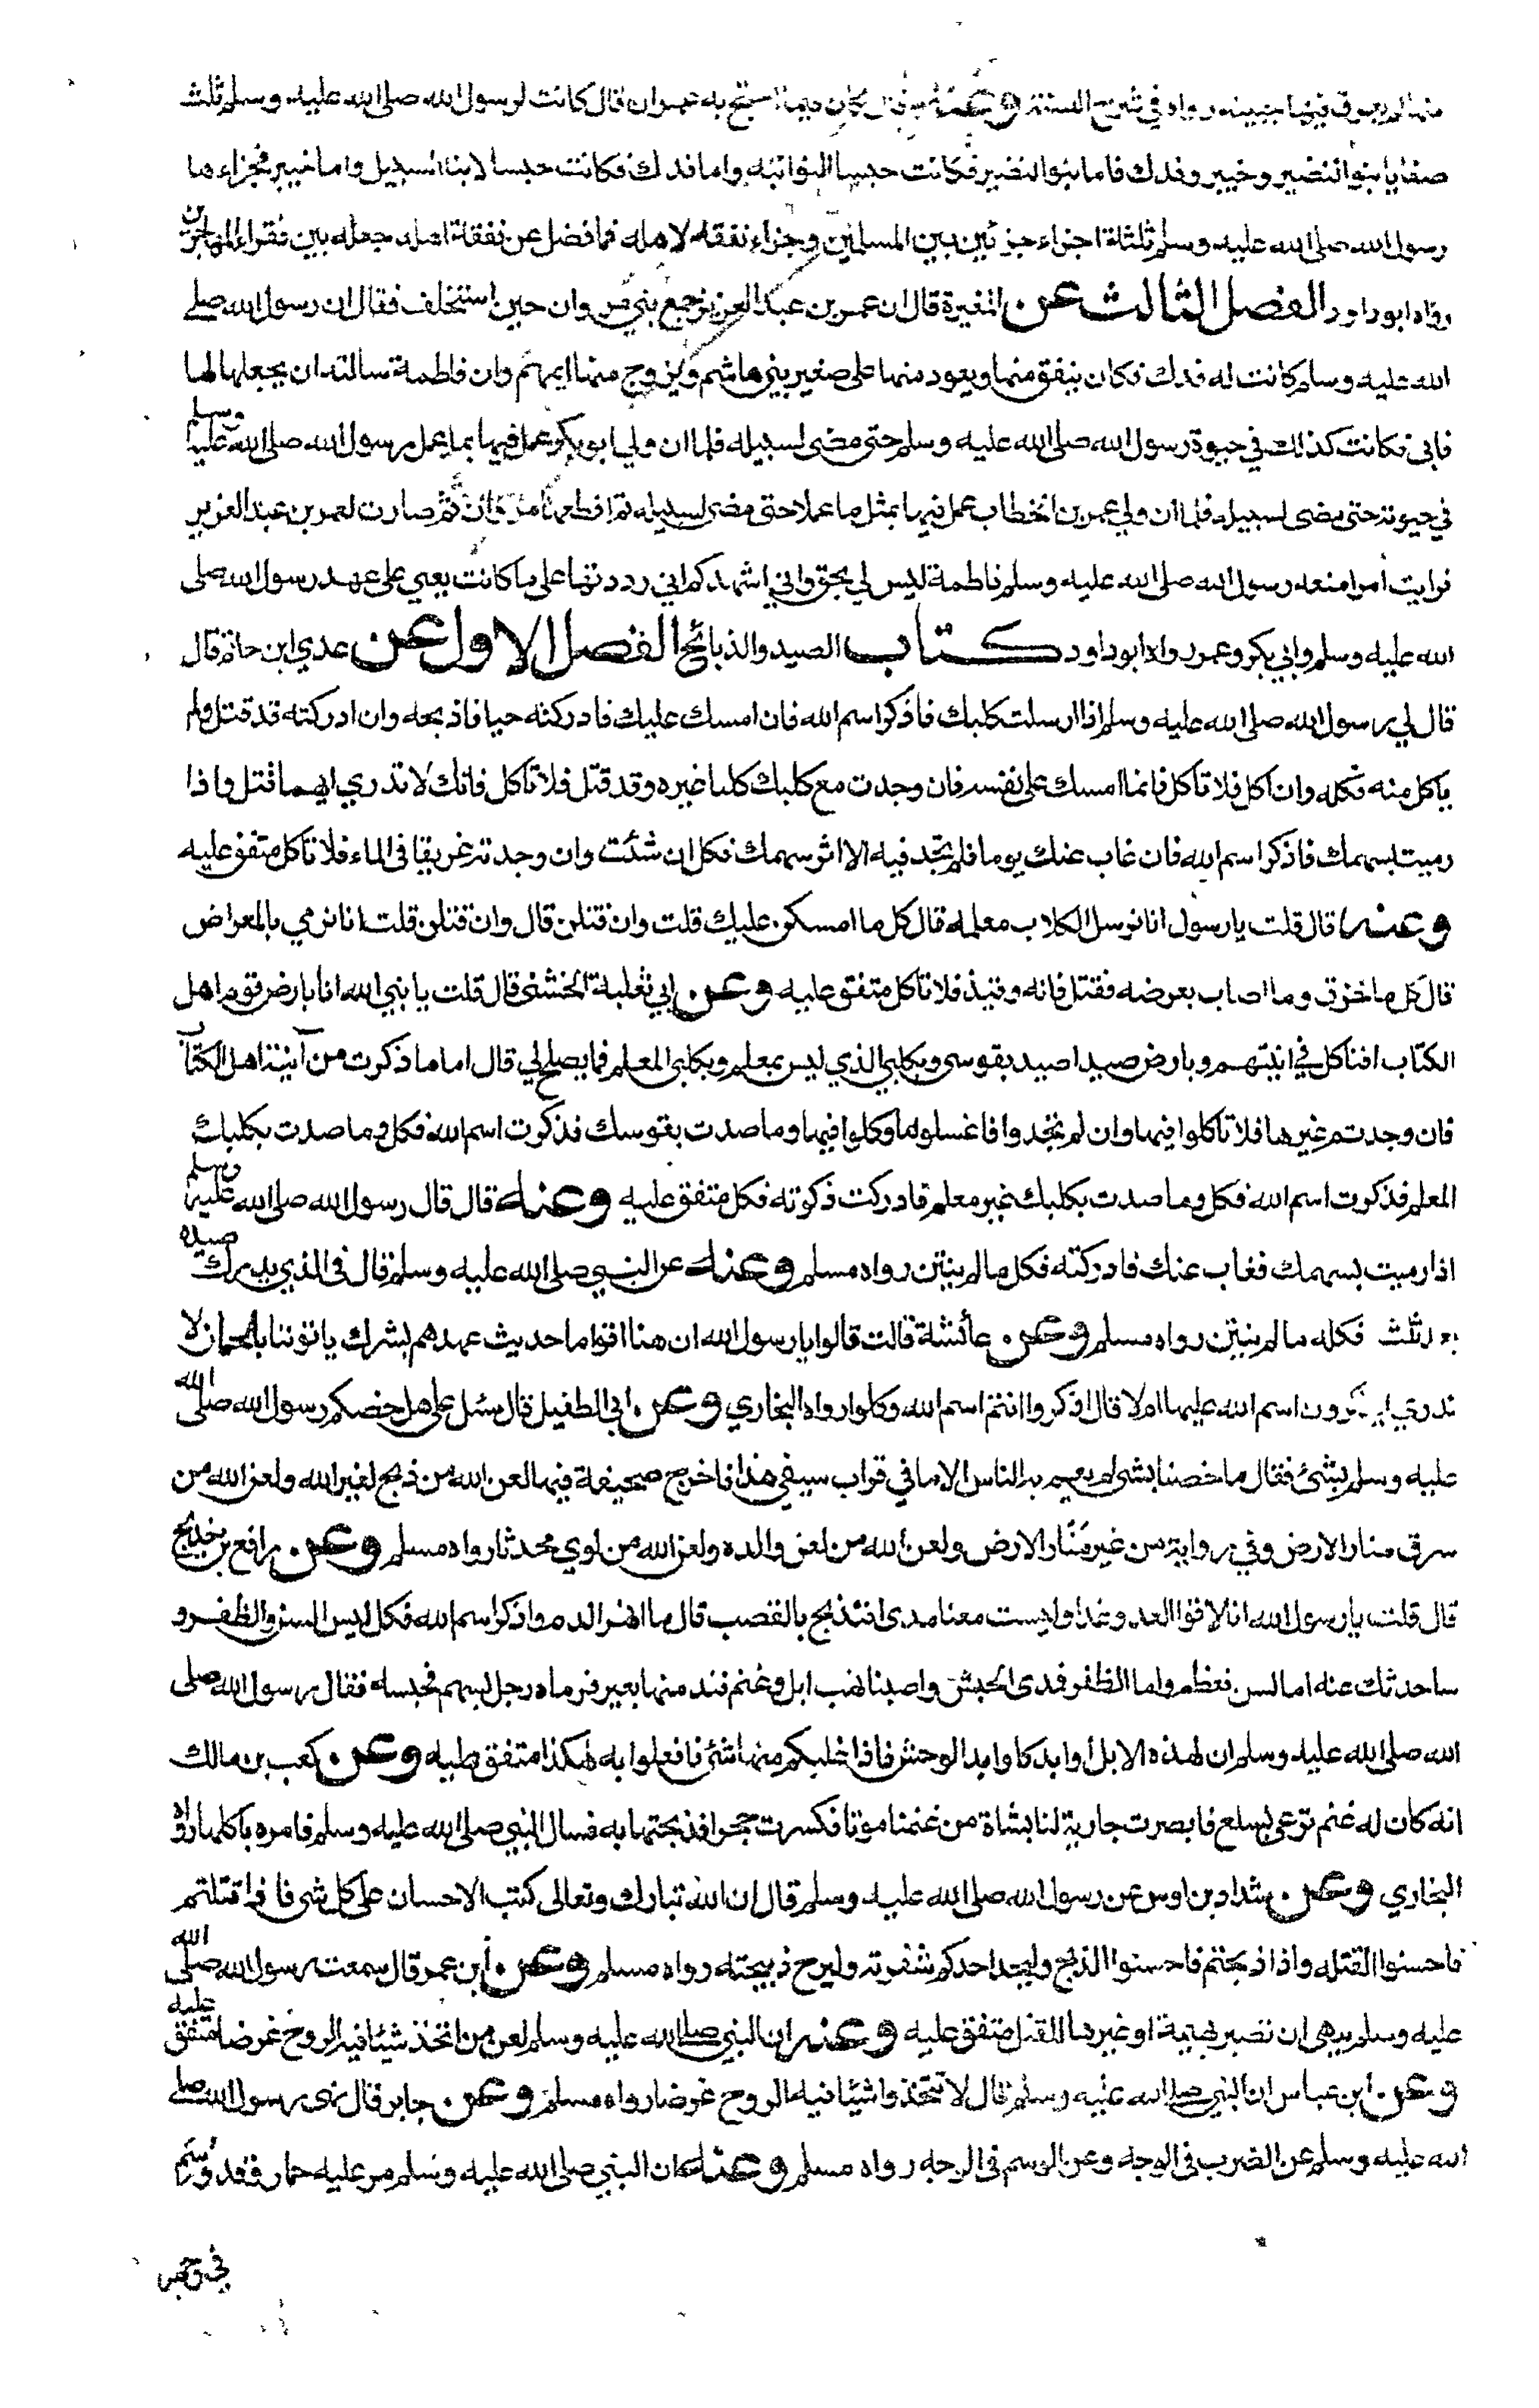 رواه في شرح السنة وعنه قال كان فيما احتج به عمر ان قال كانت لرسول الله صلى الله عليه وسلم ثلث
صفايا بنوا النضير وخيبر وفدك فاما بنوا النضير فكانت حبسا لنوائبه واما فدك فكانت حبسا لابناء السبيل واما خيبر فجزاءها
رسول الله صلى الله عليه وسلم ثلثة اجزاء جزئين بين المسلمين وجزاء نفقه لاهله فما فضل عن نفقة اهله جعله بين فقراء المهاجرين
رواه ابو داود الفصل الثالث عن المغيرة قال ان عمر بن عبد العزيز جمع بني مروان حين استخلف فقال ان رسول الله صلى
الله عليه وسلم كانت له فدك فكان ينفق منها ويعود منها على صغير بني هاشم ويزوج منها ايمهم وان فاطمة سالته ان يجعلها لها
فابى فكانت كذلك في حيوة رسول الله صلى الله عليه وسلم حتى مضى لسبيله فلما ان ولي ابو بكر عمل فيها بما عمل رسول الله صلى الله عليه وسلم
في حيوته حتى مضى لسبيله فلما ان ولي عمر بن الخطاب عمل فيها بمثل ما عملا حتى مضى لسبيله ثم اقطعها مروان ثم صارت لعمر بن عبد العزيز
فرايت امرا منعه رسول الله صلى الله عليه وسلم فاطمة ليس لي بحق واني اشهدكم اني رددتها على ما كانت يعني على عهد رسول الله صلى
الله عليه وسلم وابي بكر وعمر رواه ابو داود كتاب الصيد والذبائح الفصل الاول عن عدي ابن حاتم قال
قال لي رسول الله صلى الله عليه وسلم اذا ارسلت كلبك فاذكر اسم الله فان امسك عليك فادركته حيا فاذبحه وان ادركته قد قتل ولم
ياكل منه فكله وان اكل فلا تاكل فانما امسك على نفسه فان وجدت مع كلبك كلبا غيره وقد قتل فلا تاكل فانك لا تدري ايهما قتل واذا
رميت بسهمك فاذكر اسم الله فان غاب عنك يوما فلم تجد فيه الا اثر سهمك فكل ان شئت وان وجدته غريقا في الماء فلا تاكل متفق عليه
وعنه قال قلت يا رسول انا نرسل الكلاب معلمه قال كل ما امسكن عليك قلت وان قتلن قال وان قتلن قلت انا نرمي بالمعراض
قال كل ما خزق وما اصاب بعرضه فقتل فانه وقيذ فلا تاكل متفق عليه وعن ابي ثعلبة الخشنى قال قلت يا نبي الله انا بارض قوم اهل
الكتاب افناكل في انيتهم وبارض صيد اصيد بقوسى وبكلبي الذي ليس بمعلم وبكلبى المعلم فما يصلح لي قال اما ما ذكرت من آنيتة اهل الكتاب
فان وجدتم غيرها فلا تاكلوا فيها وان لم تجدوا فاغسلوها وكلوا فيها وما صدت بقوسك فذكرت اسم الله فكل وما صدت بكلبك
المعلم فذكرت اسم الله فكل وما صدت بكلبك غير معلم فادركت ذكوته فكل متفق عليه وعنه قال قال رسول الله صلى الله عليه وسلم
اذا رميت بسهمك فغاب عنك فادركته فكل ما لم ينتن رواه مسلم وعنه عن النبي صلى الله عليه وسلم قال في الذي يدرك صيده
بعد ثلث فكله ما لم ينتن رواه مسلم وعن عائشة قالت قالوا يا رسول الله ان هنا اقواما حديث عهدهم بشرك ياتوننا بلحمان لا
ندري ايذكرون اسم الله عليها ام لا قال اذكروا انتم اسم الله وكلوا رواه البخاري وعن ابي الطفيل قال سئل على هل خصكم رسول الله صلى الله
عليه وسلم بشئ فقال ما خصنا بشى لم يعم به الناس الا ما في قراب سيفي هذا فاخرج صحيفة فيها لعن الله من ذبح لغير الله ولعن الله من
سرق منار الارض وفي رواية من غير منار الارض ولعن الله من لعن والده ولعن الله من اوي محدثا رواه مسلم وعن رافع بن خديج
قال قلت يا رسول الله انا لاقوا العدو غدا وليست معنا مدى افنذبح بالقصب قال ما انهر الدم واذكر اسم الله فكل ليس السن والظفر و
ساحدثك عنه اما السن فعظم واما الظفر فمدى الحبش واصبنا نهب ابل وغنم فند منها بعير فرماه رجل بسهم فحبسه فقال رسول الله صلى
الله صلى الله عليه وسلم ان لهذه الابل اوابد كاوابد الوحش فاذا غلبكم منها شئ فافعلوا به هكذا متفق عليه وعن كعب بن مالك
انه كان له غنم ترعى بسلع فابصرت جارية لنا بشاة من غنمنا موتا فكسرت حجرا فذبحتها به فسال النبي صلى الله عليه وسلم فامره باكلها رواه
البخاري وعن شداد بن اوس عن رسول الله صلى الله عليه وسلم قال ان الله تبارك وتعالى كتب الاحسان على كل شى فاذا قتلتم
فاحسنوا القتله واذا ذبحتم فاحسنوا الذبح وليحد احدكم شفرته وليرح ذبيحته رواه مسلم وعن ابن عمر قال سمعت رسول الله صلى الله
عليه وسلم ينهى ان تصبر بهيمة او غيرها للقتل متفق عليه وعنه ان النبي صلى الله عليه وسلم لعن من اتخذ شيئا فيه الروح غرضا متفق عليه
وعن ابن عباس ان النبي صلى الله عليه وسلم قال لا تتخذوا شيئا فيه الروح غرضا رواه مسلم وعن جابر قال نهى رسول الله صلى
الله عليه وسلم عن الضرب في الوجه وعن الوسم في الوجه رواه مسلم وعنه ان النبي صلى الله عليه وسلم مر عليه حمار وقد وسم
في وجهه